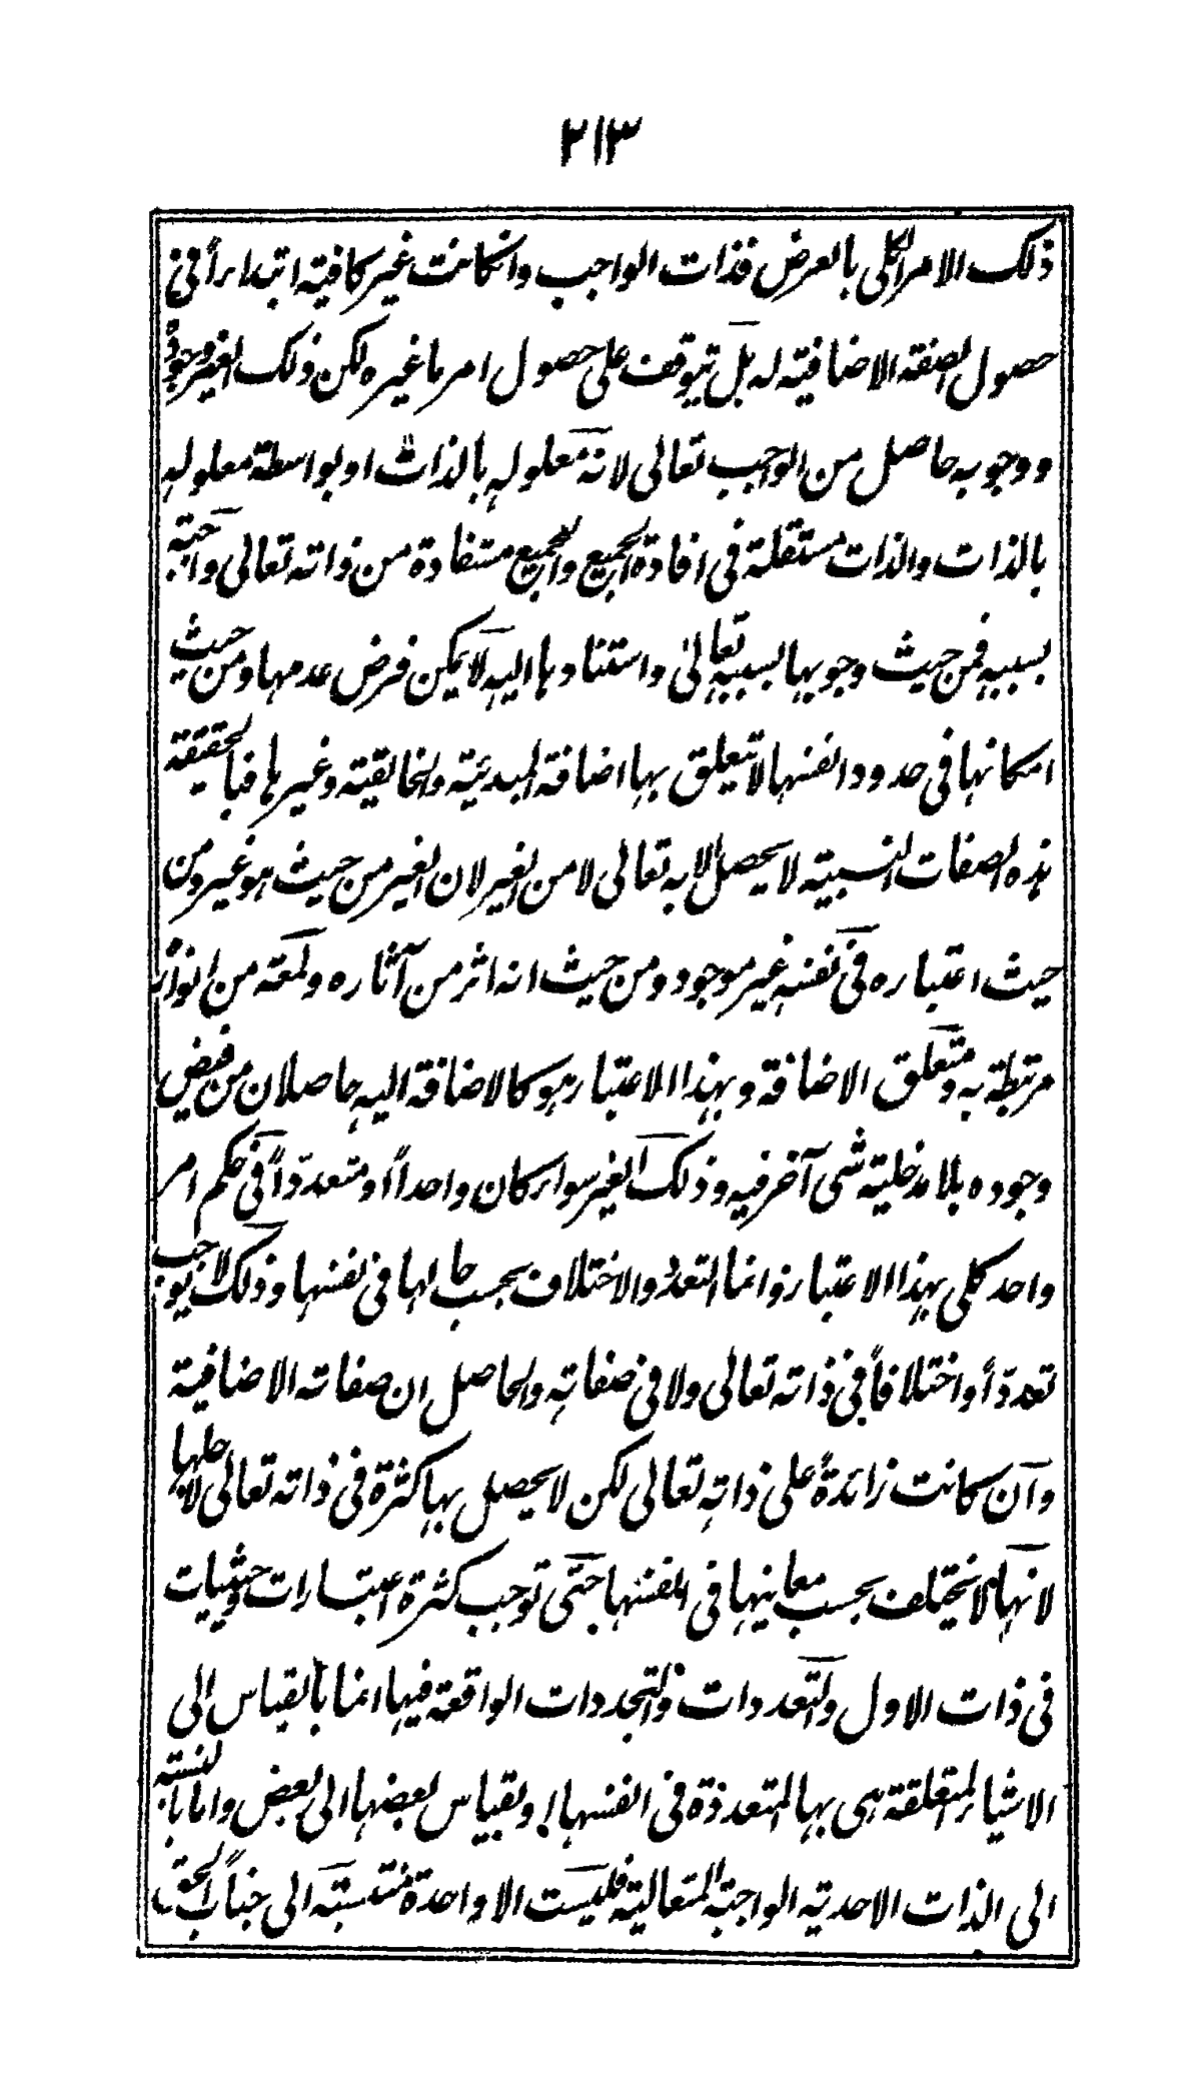 ٢١٣
ذلك الامر الكلى بالعرض فذات الواجب وانكانت غير كافية ابتداءً فى
حصول الصفة الاضافية له بل يتوقف على حصول امر ما غيره لكن ذلك الغير وجوده
ووجوبه حاصل من الواجب تعالى لانه معلوله بالذات او بواسطة معلوله
بالذات والذات مستقلة فى افادة الجميع والجميع مستفادة من ذاته تعالى واجبة
بسببه فمن حيث وجوبها بسببه تعالى واستنادها اليه لا يمكن فرض عدمها ومن حيث
امكانها فى حدود انفسها لا يتعلق بها اضافة المبدئية والخالقية وغيرها فبالحقيقة
هذه الصفات النسبية لا يحصل الا به تعالى لا من الغير لان الغير من حيث هو غير ومن
حيث اعتباره فى نفسه غير موجود ومن حيث انه اثر من آثاره ولمعة من انواره
مرتبطة به ومتعلق الاضافة وبهذا الاعتبار هو كالاضافة اليه حاصلان من فيض
وجوده بلا مدخلية شى آخر فيه وذلك الغير سواء كان واحداً او متعدداً فى حكم امر
واحد كلى بهذا الاعتبار وانما التعدد والاختلاف بحسب حالها فى نفسها وذلك لا يوجب
تعدداً واختلافاً فى ذاته تعالى ولا فى صفاته والحاصل ان صفاته الاضافية
وان كانت زائدةً على ذاته تعالى لكن لا يحصل بها كثرة فى ذاته تعالى لاجلها
لانها لا يختلف بحسب معانيها فى انفسها حتى توجب كثرة اعتبارات وحيثيات
فى ذات الاول والتعددات والتجددات الواقعة فيها انما بالقياس الى
الاشياء المتعلقة هى بها المتعددة فى انفسها او بقياس بعضها الى بعض واما بالنسبة
الى الذات الاحدية الواجبة المتعالية فليست الا واحدة منتسبة الى جناب الحق